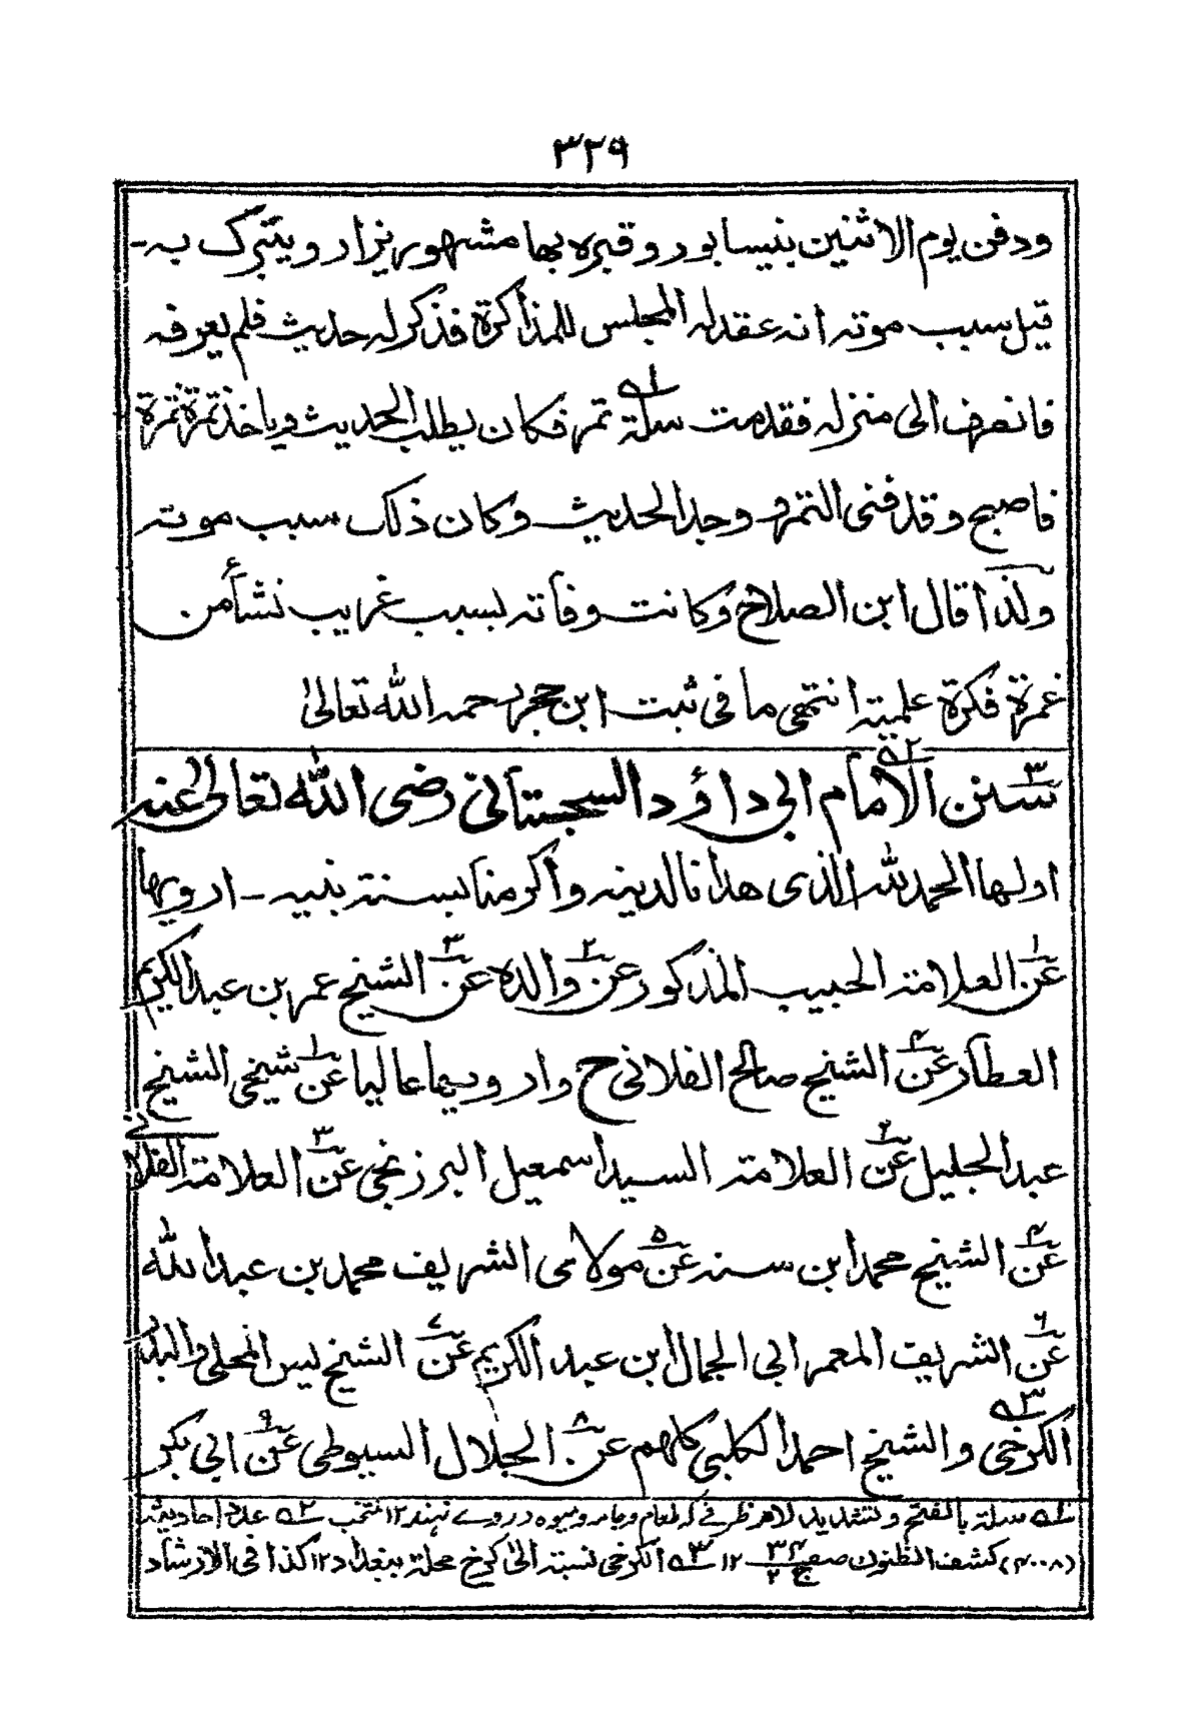 ۳۲۹
ودفن يوم الاثنين بنيسابور وقبره بها مشهور يزار ويتبرك به-
قيل سبب موته انه عقد له المجلس للمذاكرة فذكر له حديث فلم يعرفه
فانصرف الى منزله فقدمت سلة ۱ تمر فكان يطلب الحديث وياخذ تمرة تمرة
فاصبح وقد فنى التمر ووجد الحديث وكان ذلك سبب موته
ولذا قال ابن الصلاح وكانت وفاته بسبب غريب نشأ من
غمرة فكرة علمية انتهى ما فى ثبت ابن حجر رحمه الله تعالى
۳ سنن الامام ۲ ابى داؤد السجستانى رضى الله تعالى عنه
اولها الحمد لله الذى هدانا لدينه واكرمنا بسنة نبيه - ارويها
عن ۱ العلامة الحبيب المذكور عن ۲ والده عن ۳ الشيخ عمر بن عبد الكريم
العطار عن ۴ الشيخ صالح الفلانى ح وارويها عاليا عن ۱ شيخى الشيخ
عبد الجليل عن ۲ العلامة السيد اسمعيل البرزنجى عن ۳ العلامة الفلانى
عن ۴ الشيخ محمد ابن سنه عن ۵ مولاى الشريف محمد بن عبد الله
عن ۶ الشريف المعمر ابى الجمال ابن عبد الكريم عن ۷ الشيخ يس المحلى والبدر
الكرخى ۳ والشيخ احمد الكلبى كلهم عن ۸ الجلال السيوطى عن ۹ ابى بكر
۱ سلة بالفتح وتشديد لام ظرفے كه طعام وجامه وميوه در وے نهند ۱۲ منتخب ۲ عدة احاديثه
(۴۰۰۸) كشف الظنون صفحه ۳۴ ج ۲ ۱۲ ۳ الكرخى نسبة الى كرخ محلة ببغداد ۱۲ كذا فى الارشاد